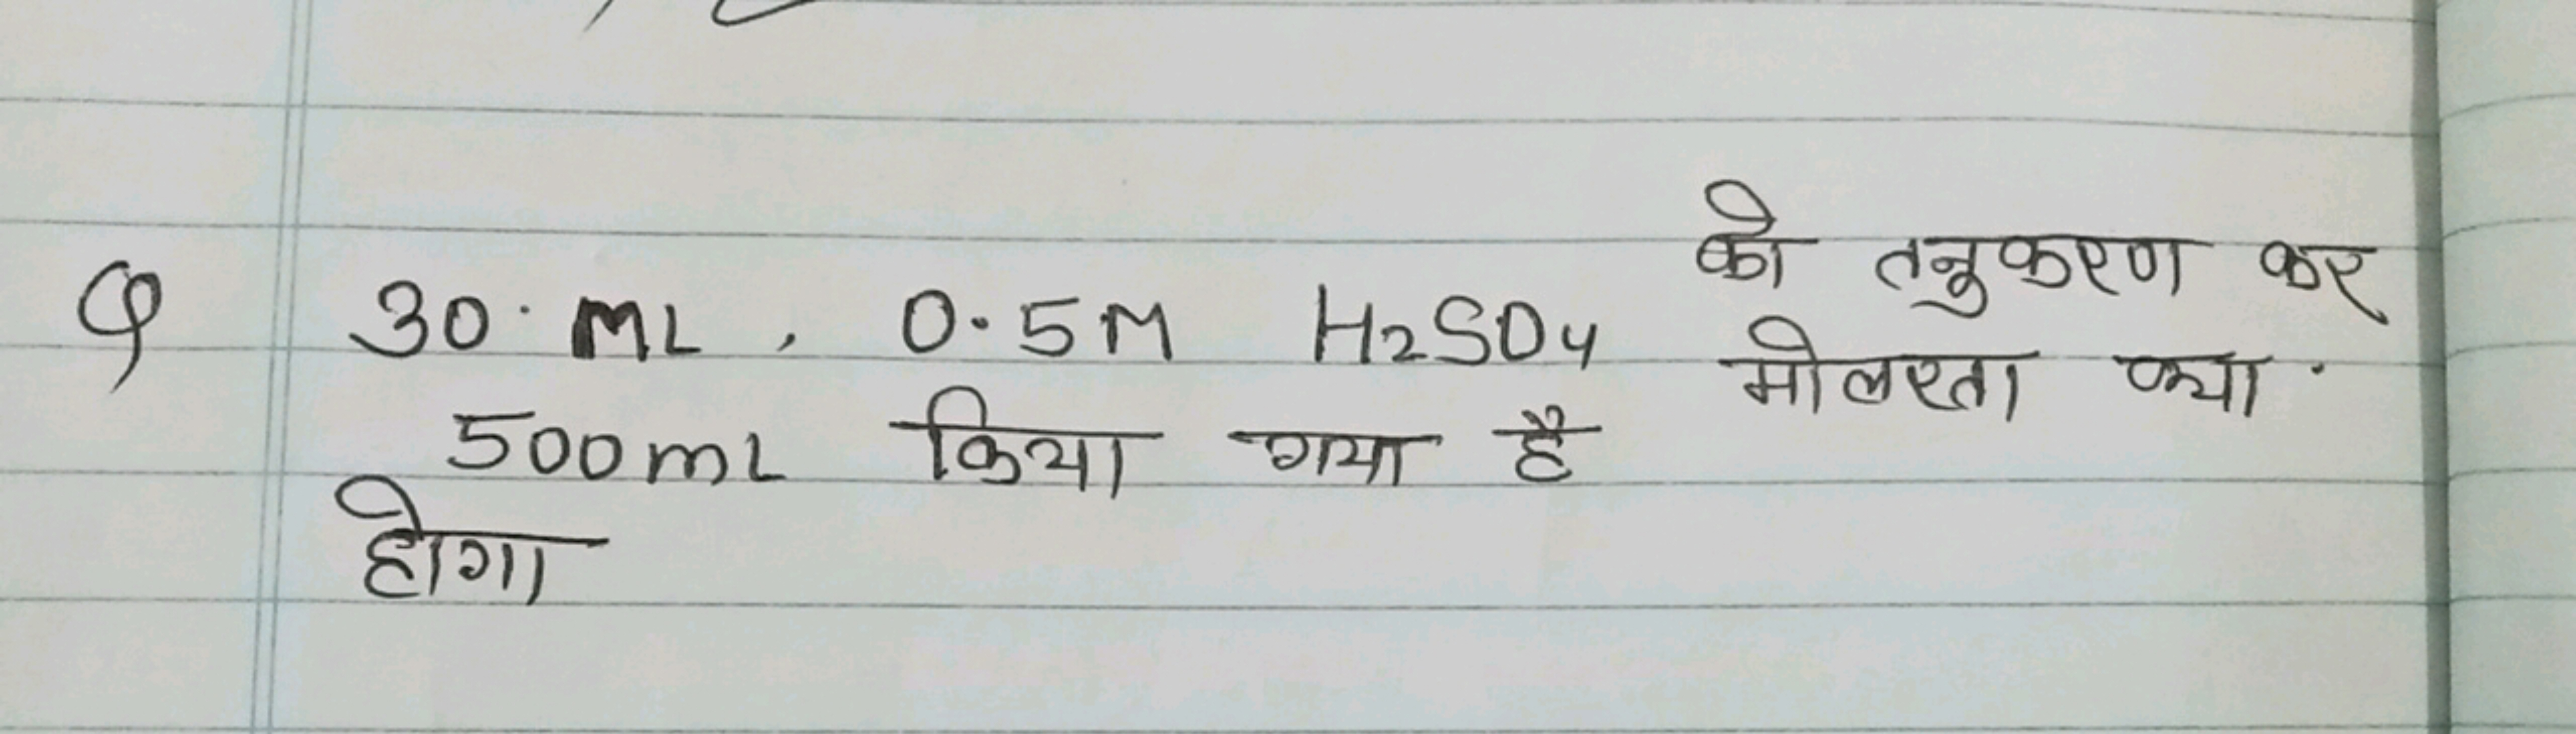 Q 30. ML, 0.5M H2SO4 को तनुकरण कर
500mL किया गया है मोलरता क्या.
होगा